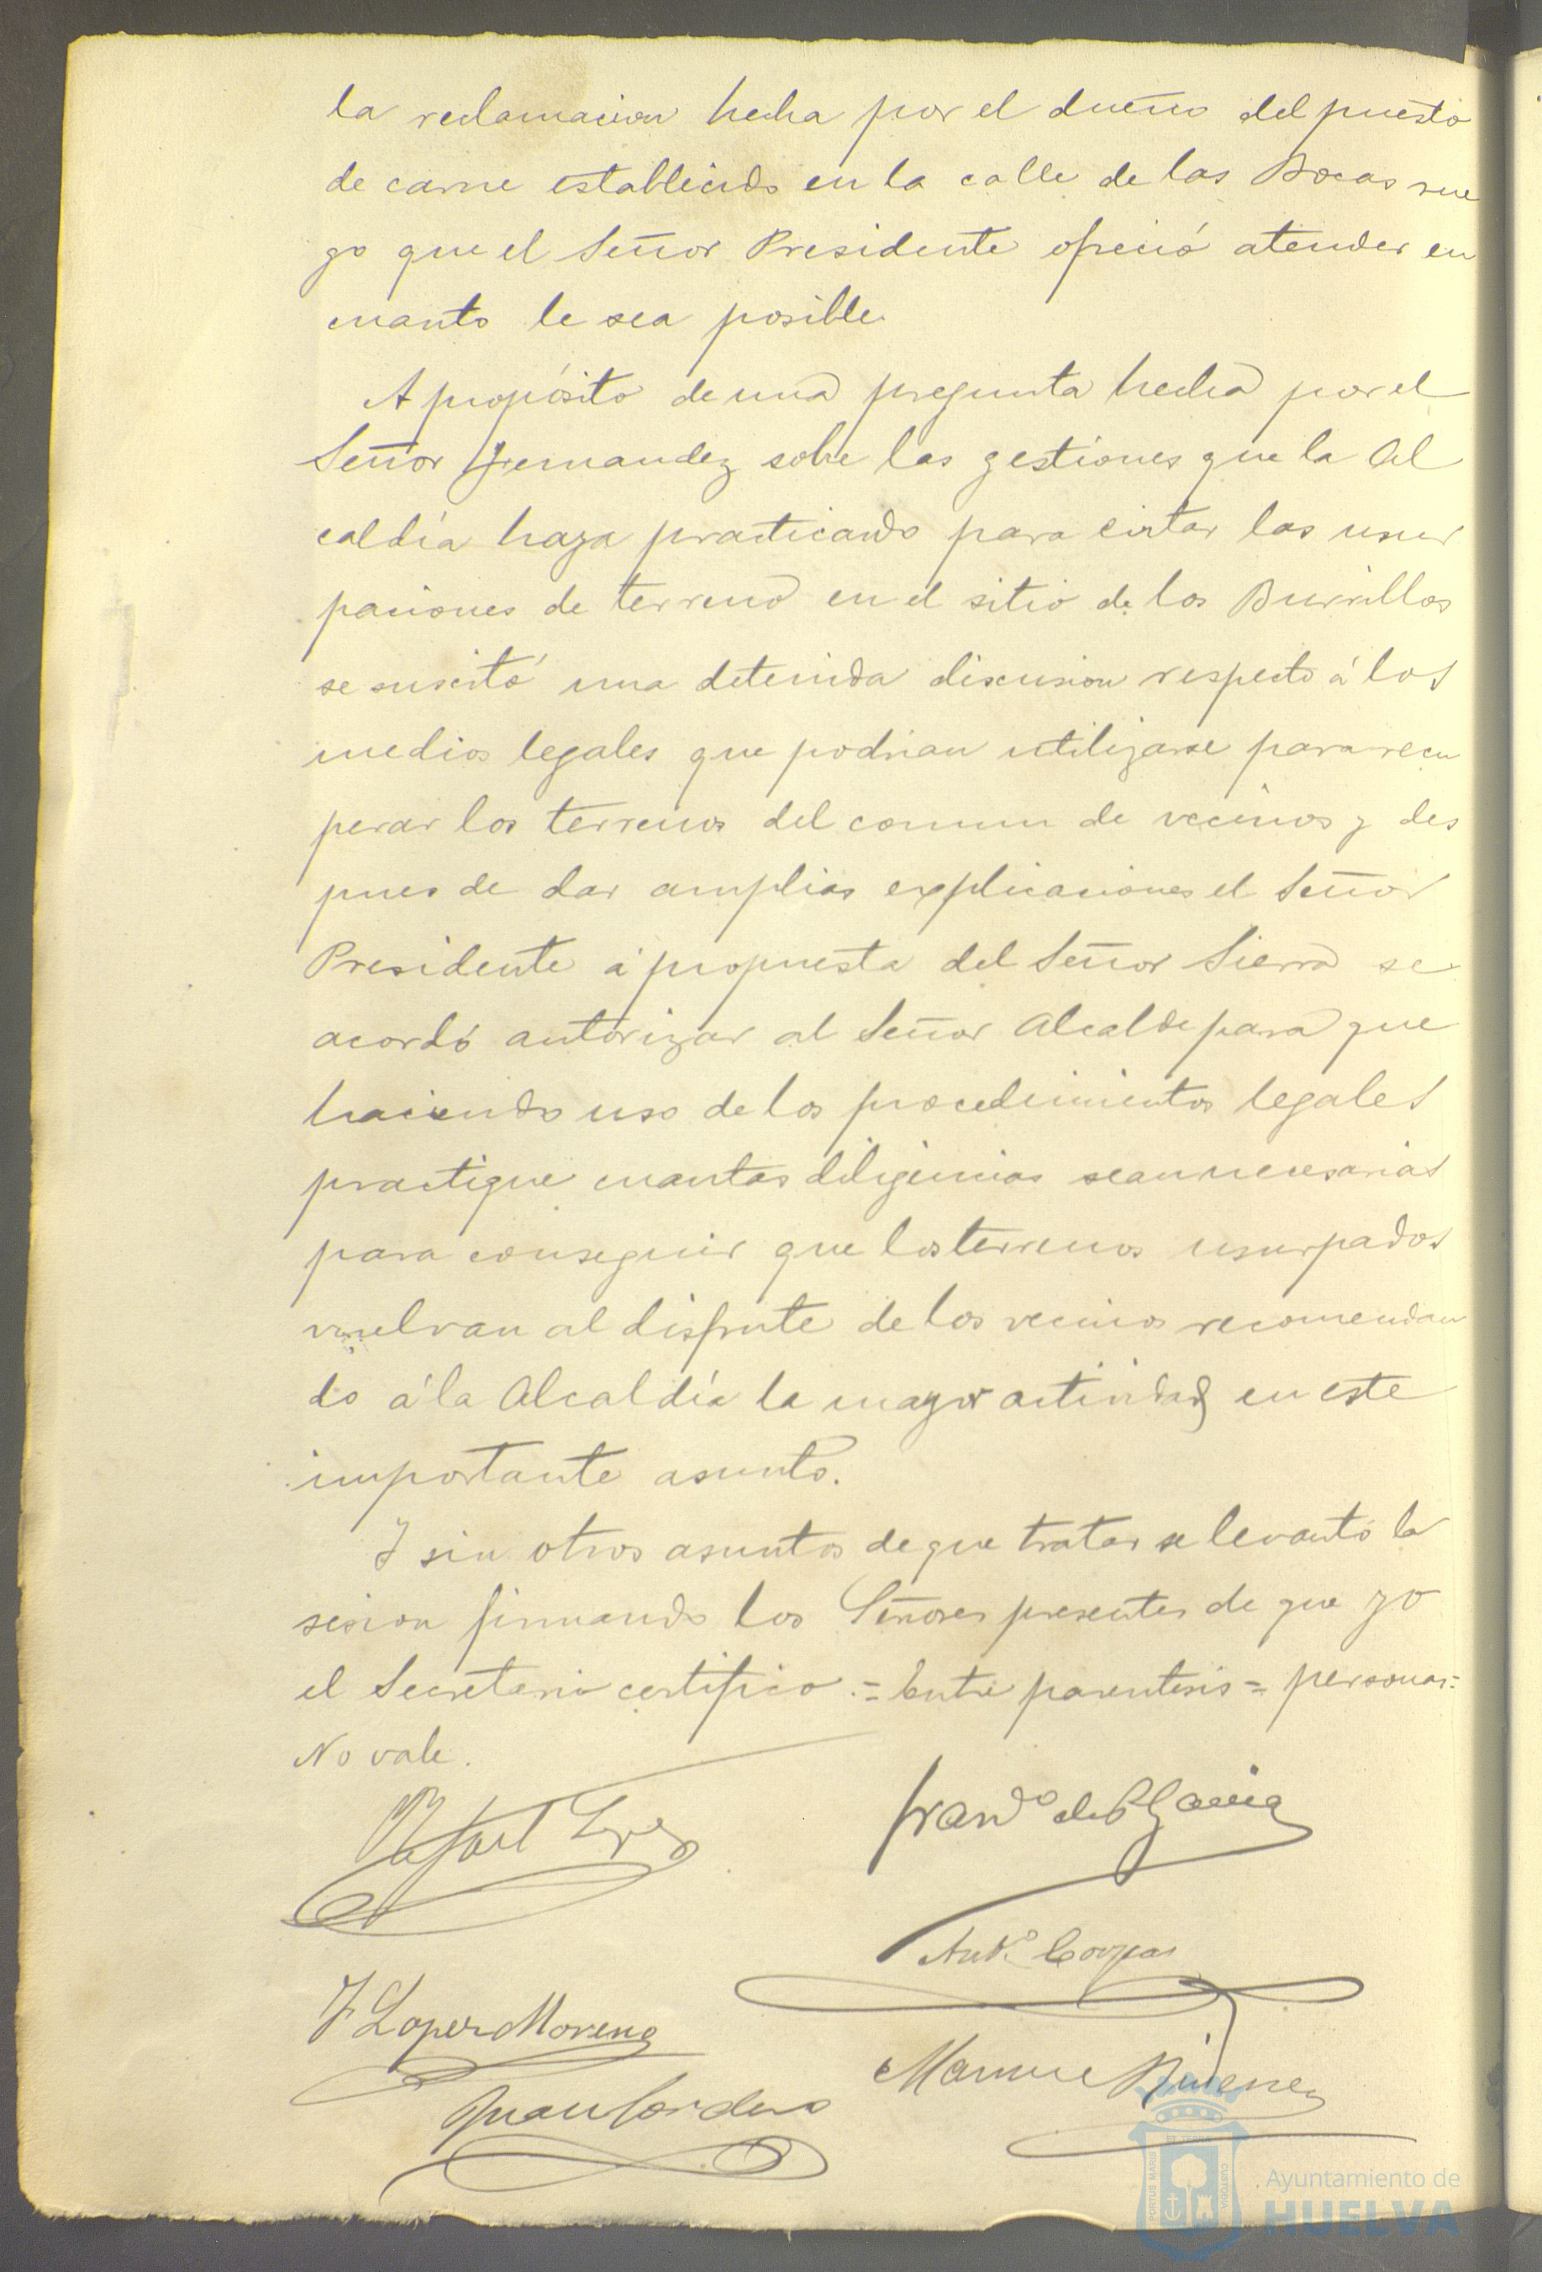 la reclamacion hecha por el dueño del puesto
de carne establecido en la calle de las Bocas rue
go que el Señor Presidente ofreció atender en
cuanto le sea posible.
A propósito de una pregunta hecha por el
Señor Fernandez sobre las gestiones que la Al
caldía haya practicado para evitar las usur
paciones de terreno en el sitio de los Burrillos
se suscitó una detenida discusion respecto á los
medios legales que podrian utilizarse para recu
perar los terrenos del comun de vecinos y des
pues de dar amplias explicaciones el Señor
Presidente á propuesta del Señor Sierra se
acordó autorizar al Señor Alcalde para que
haciendo uso de los procedimientos legales
practique cuantas diligencias sean necesarias
para conseguir que los terrenos usurpados
vuelvan al disfrute de los vecinos recomendan
do á la Alcaldía la mayor actividad en este
importante asunto.
Y sin otros asuntos de que tratar se levantó la
sesion firmando los Señores presentes de que yo
el Secretario certifico.= Entre parentesis = personas=
No vale.
Rafael Lopez
Franco de P García
Anto Corpas
J Lopez Moreno
Manuel Jimenez
Juan Cordero
PORTUS MARIS
ET TERRE
CUSTODIA
Ayuntamiento de
HUELVA